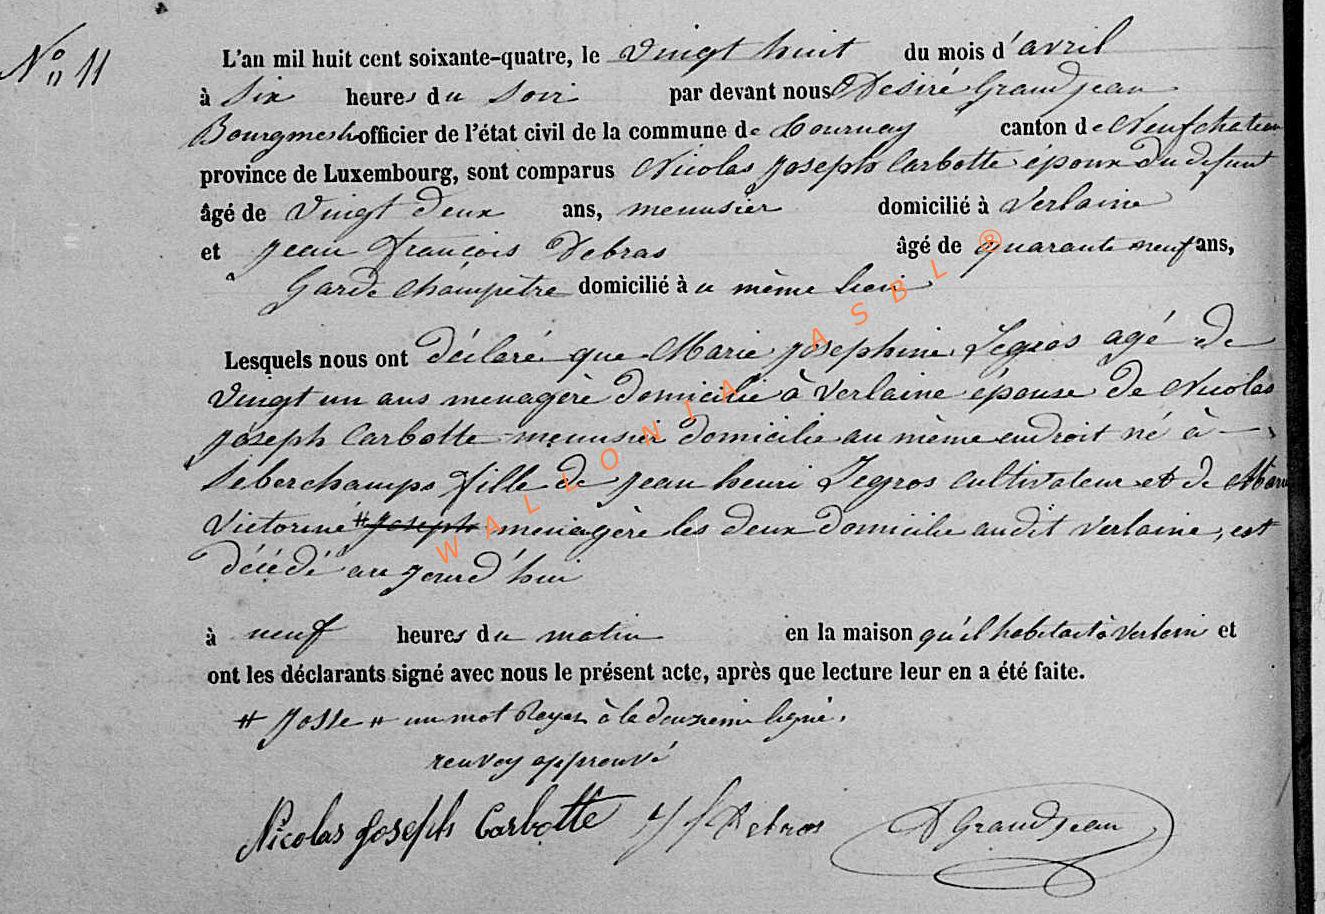 N° 11
L'an mil huit cent soixante-quatre, le vingt huit du mois d'avril
à six heures du soir par devant nous Désiré Grandjean
Bourgmestre officier de l'état civil de la commune de Tournay canton de Neufchateau
province de Luxembourg, sont comparus Nicolas Joseph Carbotte époux du défunt
âgé de vingt deux ans, menusier domicilié à Verlaine
et Jean François Debras âgé de quarante neuf ans,
Garde champêtre domicilié au même lieu
Lesquels nous ont déclaré que Marie Josephine Legros agé de
vingt un ans menagère domicilié à Verlaine épouse de Nicolas
Joseph Carbotte menusier domicilie au même endroit né à
Seberchamps fille de Jean henri Legros cultivateur et de Marie
Victorine # Joseph menagère les deux domicilie audit Verlaine, est
décédé aujourd'hui
à neuf heures du matin en la maison qu'il habitait à Verlaine et
ont les déclarants signé avec nous le présent acte, après que lecture leur en a été faite.
# Josse # un mot Rayer à la deuxième ligne.
renvoy approuvé
Nicolas Joseph Carbotte J f Debras D Grandjean
WALLONIA ASBL ®